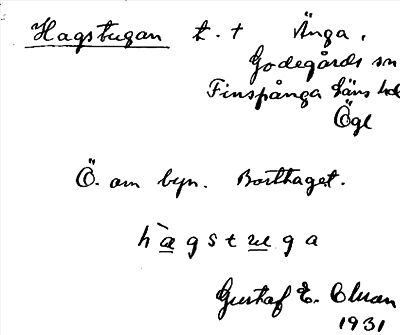 Hagstugan t. t Änga,
Godegårds sn
Finspånga läns hd
Ögl
Ö. om byn. Borthaget.
hàgstuga
Gustaf E.
1931